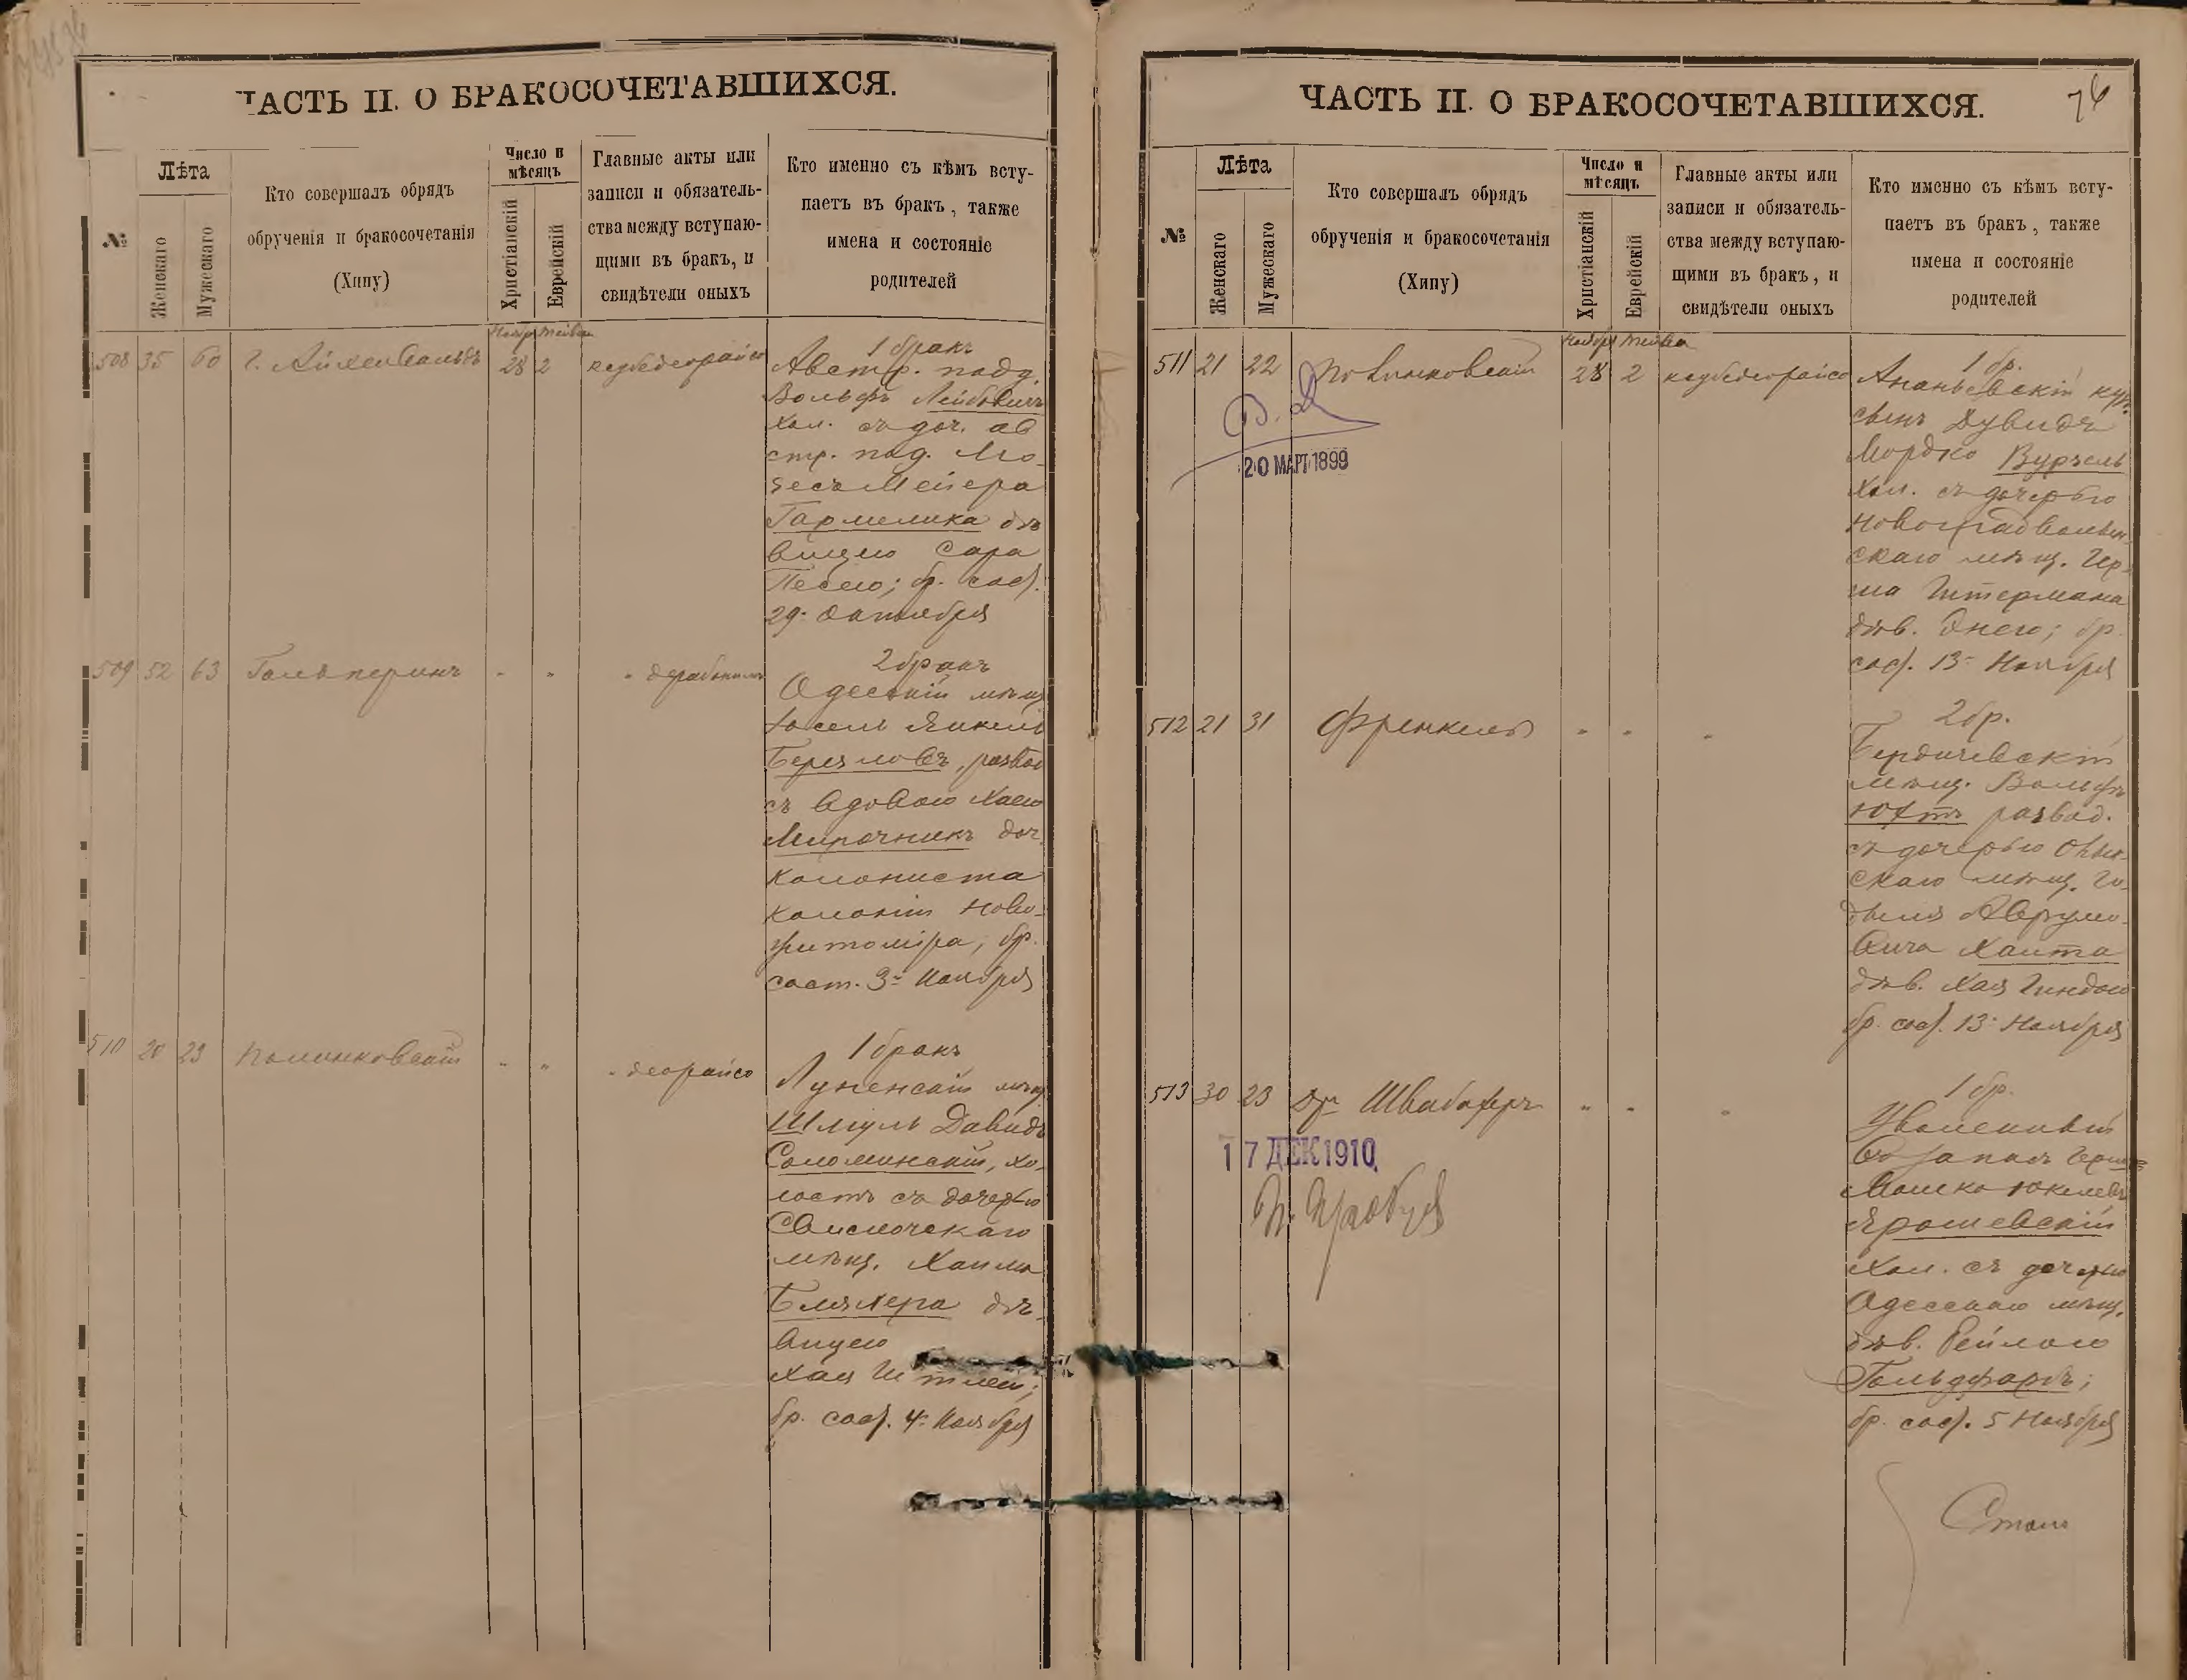 ЧАСТЬ II. О БРАКОСОЧЕТАВШИХСЯ.
№
Лѣта
Женскаго
Мужескаго
Кто совершалъ обрядъ
обрученія и бракосочетанія
(Хипу)
Число и
мѣсяцъ
Христіанскій
Еврейскій
Главные акты или
записи и обязатель-
ства между вступаю-
щими въ бракъ, и
свидѣтели оныхъ
Кто именно съ кѣмъ всту-
паетъ въ бракъ, также
имена и состояніе
родителей
508 35 60 г. Айхенвальдъ 28 2
1 бракъ
Австр. подд.
Вольфъ Лейбовичъ
хол. съ доч. ав
стр. под. Мо-
зеса Мейера
Гармелика дѣ
вицею Сара
Песею; бр. сост.
29 Октября
509 52 63 Гальперинъ " "
2 бракъ
Одесскій мѣщ.
Іосель Янкель
развод
съ вдовою Хаею
Мирочникъ доч.
колониста
колоніи Ново-
житоміра; бр.
сост. 3 Ноября
510 20 23 " " " деорайсо
1 бракъ
мѣщ
Шмуль Давидъ
Соломинскій, хо-
лостъ съ дочерью
Свислочскаго
мѣщ. Хаима
Бляхера дѣ-
вицею
Хая
бр. сост. 4 Ноября
ЧАСТЬ II. О БРАКОСОЧЕТАВШИХСЯ.
76
№
Лѣта
Женскаго
Мужескаго
Кто совершалъ обрядъ
обрученія и бракосочетанія
(Хипу)
Число и
мѣсяцъ
Христіанскій
Еврейскій
Главные акты или
записи и обязатель-
ства между вступаю-
щими въ бракъ, и
свидѣтели оныхъ
Кто именно съ кѣмъ всту-
паетъ въ бракъ, также
имена и состояніе
родителей
511 21 22 28 2
20 МАР 1899
1 бр.
Ананьевскій куп.
сынъ Дувидъ
Мордко Вурзель
хол. съ дочерью
Новоградволын-
скаго мѣщ. Гер-
ша Штермана
дѣв. Энею; бр.
сост. 13 Ноября
512 21 31 Френкель " " "
2 бр.
Бердичевскій
мѣщ. Вольфъ
Юхтъ развод.
съ дочерью
скаго мѣщ. Го-
Аврумо-
вича Хаита
дѣв. Хая Гиндою
бр. сост. 13 Ноября
513 30 23 др Швабахеръ " " "
17 ДЕК 1910
1 бр.
Уволенный
въ запасъ
Мошко
Ярошевскій
хол. съ дочерью
Одесскаго мѣщ.
дѣв. Рейзлою
Гольдфарбъ;
бр. сост. 5 Ноября